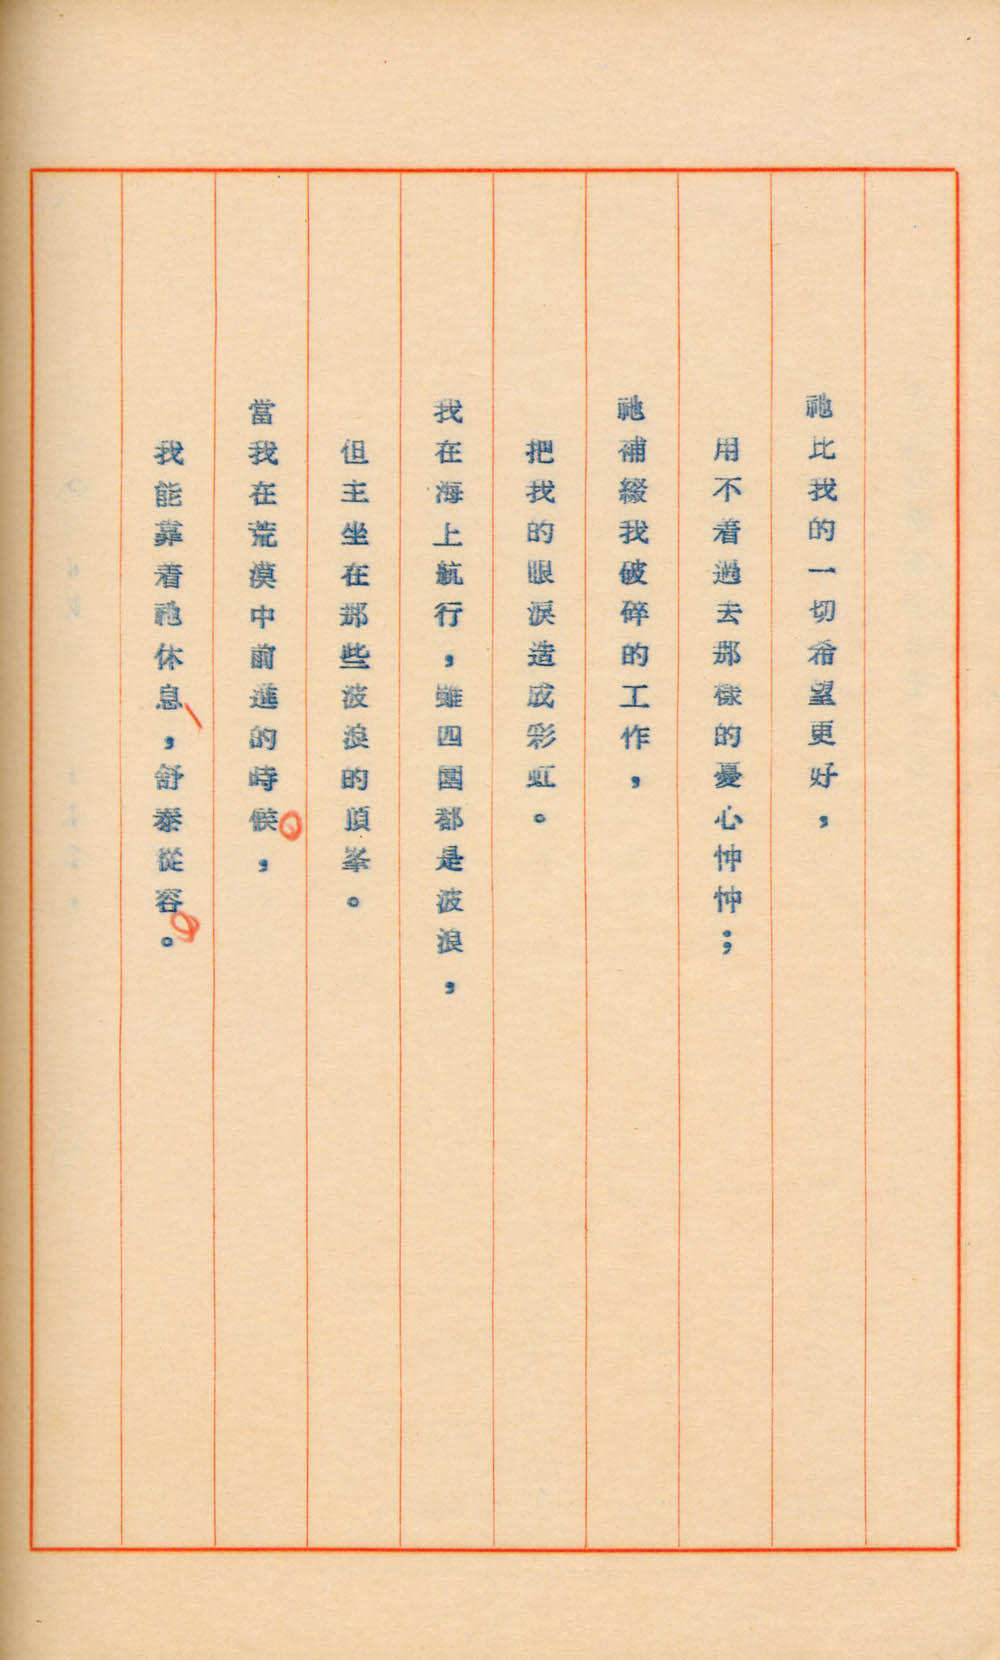 祂比我的一切希望更好，
用不着過去那樣的憂心忡忡；
祂補綴我破碎的工作，
把我的眼淚造成彩虹。
我在海上航行，雖四圍都是波浪，
但主坐在那些波浪的頂峯。
當我在荒漠中前進的時候，
我能靠着祂休息，舒泰從容。